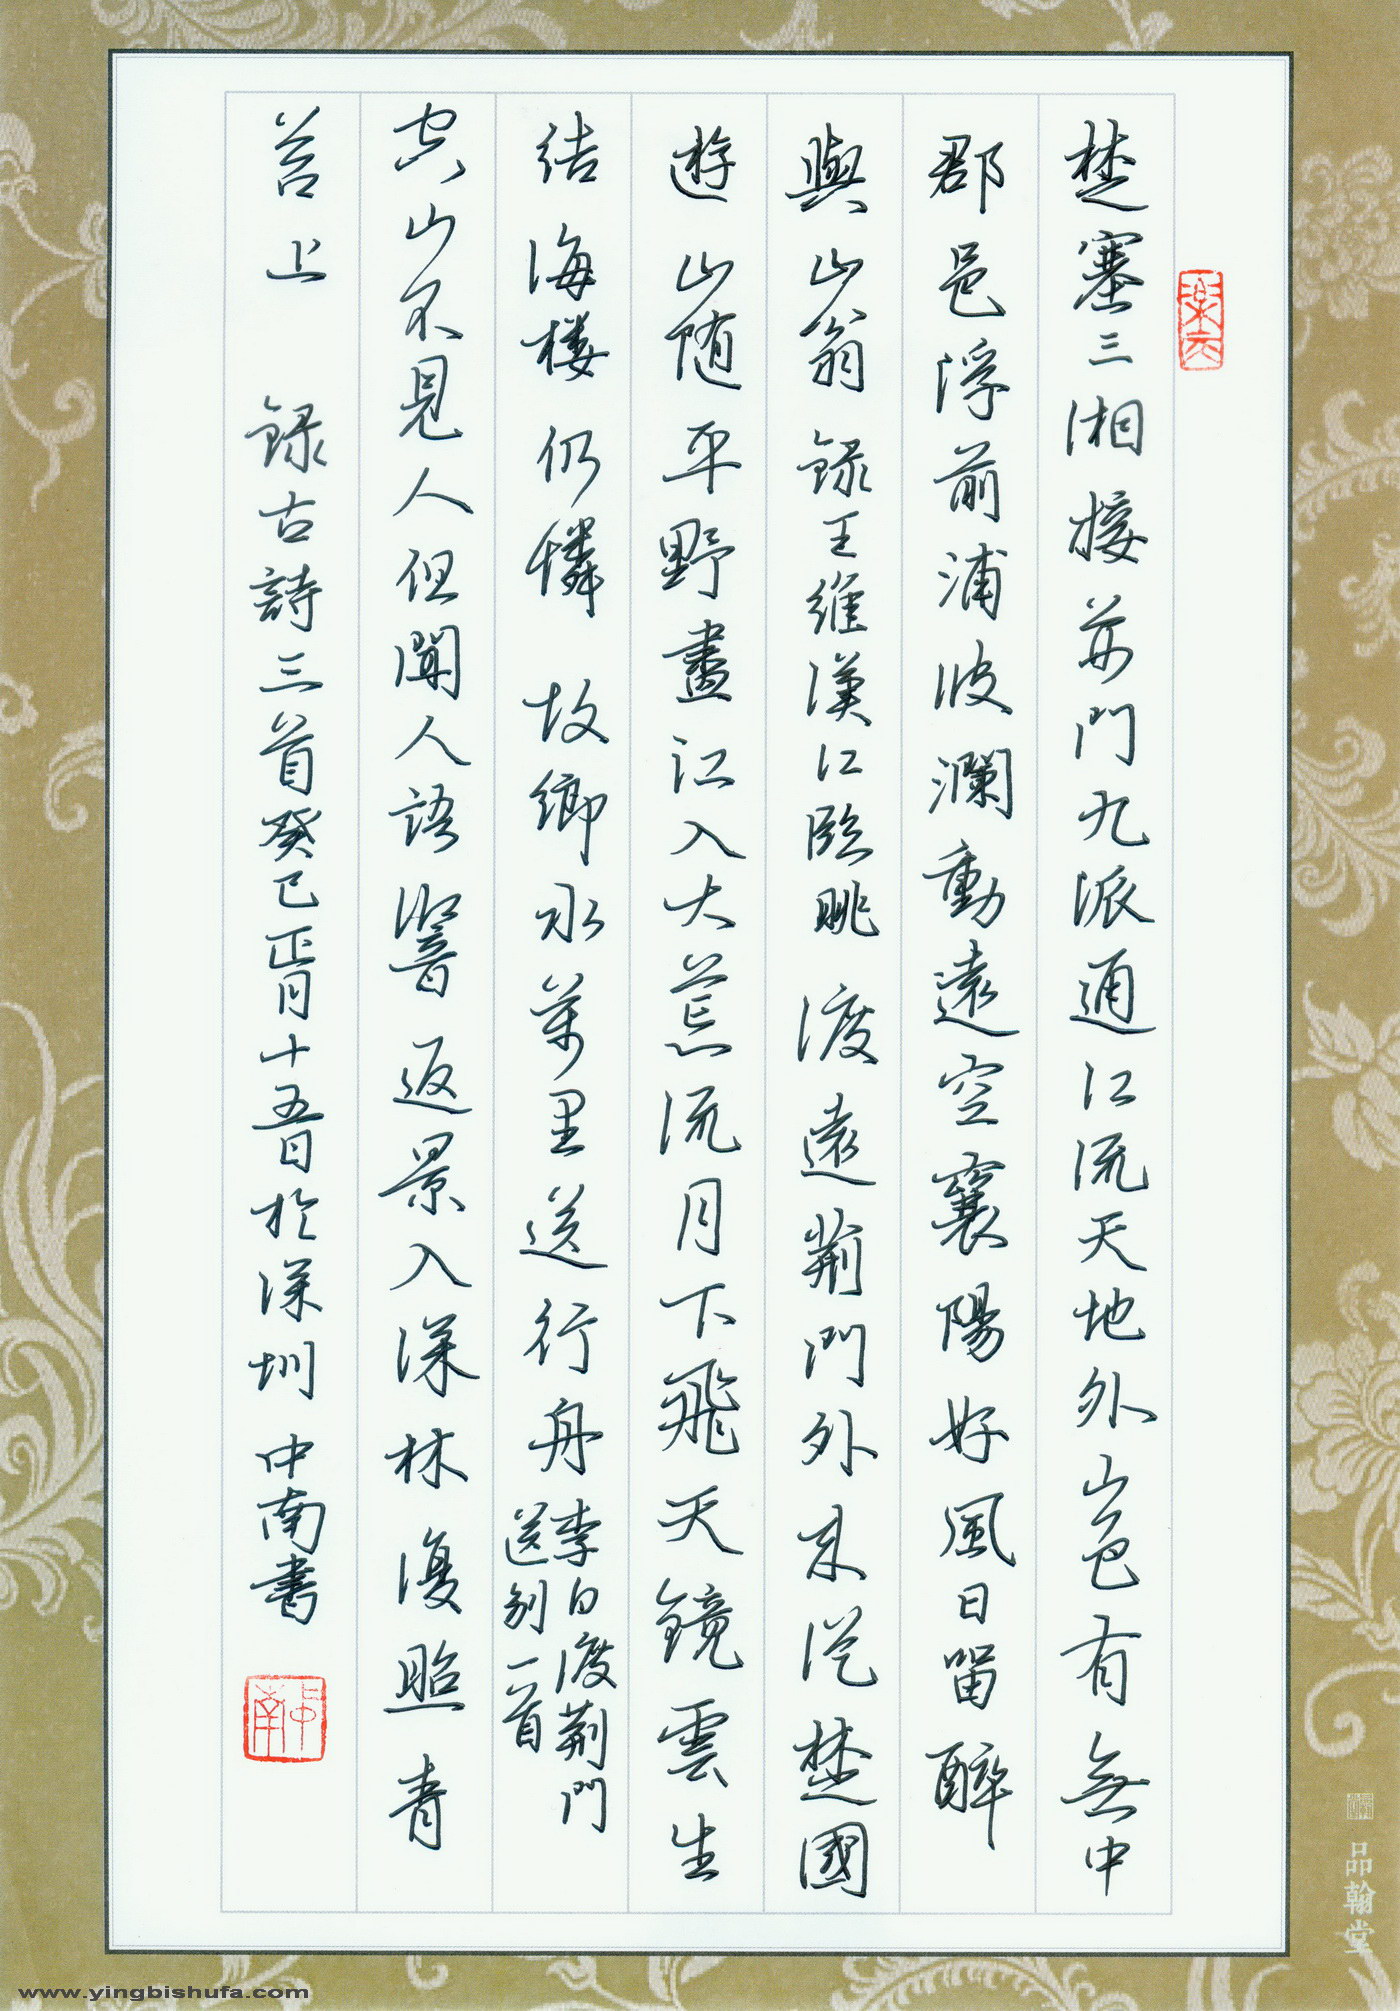 楚塞三湘接荊門九派通江流天地外山色有無中
郡邑浮前浦波瀾動遠空襄陽好風日留醉
與山翁録王維漢江臨眺渡遠荊門外来從楚國
遊山随平野盡江入大荒流月下飛天鏡雲生
结海楼仍憐故鄉水萬里送行舟李白渡荊門
送别一首
空山不見人但聞人語響返景入深林復照青
苔上録古詩三首癸巳正月十五日於深圳中南書
中南
品翰堂
www.yingbishufa.com